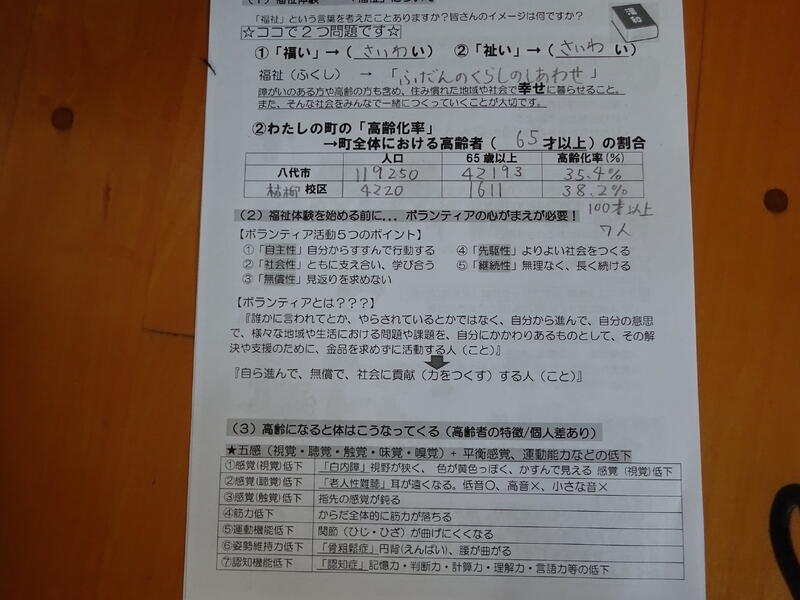 「福祉」という言葉を考えたことありますか？皆さんのイメージは何ですか？
☆ココで２つ問題です☆
①「福い」→（さいわい） ②「祉い」→（さいわ い）
福祉（ふくし） → 「ふだんのくらしのしあわせ」
障がいのある方や高齢の方も含め、住み慣れた地域や社会で幸せに暮らせること。
また、そんな社会をみんなで一緒につくっていくことが大切です。
②わたしの町の「高齢化率」
→町全体における高齢者（ 65 才以上）の割合
人口 65歳以上 高齢化率(%)
八代市 119250 42193 35.4%
校区 4220 1611 38.2%
100才以上
7人
（２）福祉体験を始める前に...ボランティアの心がまえが必要！
【ボランティア活動５つのポイント】
①「自主性」自分からすすんで行動する ④「先駆性」よりよい社会をつくる
②「社会性」ともに支え合い、学び合う ⑤「継続性」無理なく、長く続ける
③「無償性」見返りを求めない
【ボランティアとは？？？】
『誰かに言われてとか、やらされているとかではなく、自分から進んで、自分の意思
で、様々な地域や生活における問題や課題を、自分にかかわりあるものとして、その解
決や支援のために、金品を求めずに活動する人（こと）』
『自ら進んで、無償で、社会に貢献（力をつくす）する人（こと）』
（３）高齢になると体はこうなってくる（高齢者の特徴/個人差あり）
★五感（視覚・聴覚・触覚・味覚・嗅覚）+ 平衡感覚、運動能力などの低下
①感覚(視覚)低下 「白内障」視野が狭く、色が黄色っぽく、かすんで見える 感覚（視覚)低下
②感覚(聴覚)低下 「老人性難聴」耳が遠くなる。低音〇、高音×、小さな音×
③感覚(触覚)低下 指先の感覚が鈍る
④筋力低下 からだ全体的に筋力が落ちる
⑤運動機能低下 関節（ひじ・ひざ）が曲げにくくなる
⑥姿勢維持力低下 「骨粗鬆症」円背(えんぱい)、腰が曲がる
⑦認知機能低下 「認知症」記憶力・判断力・計算力・理解力・言語力等の低下